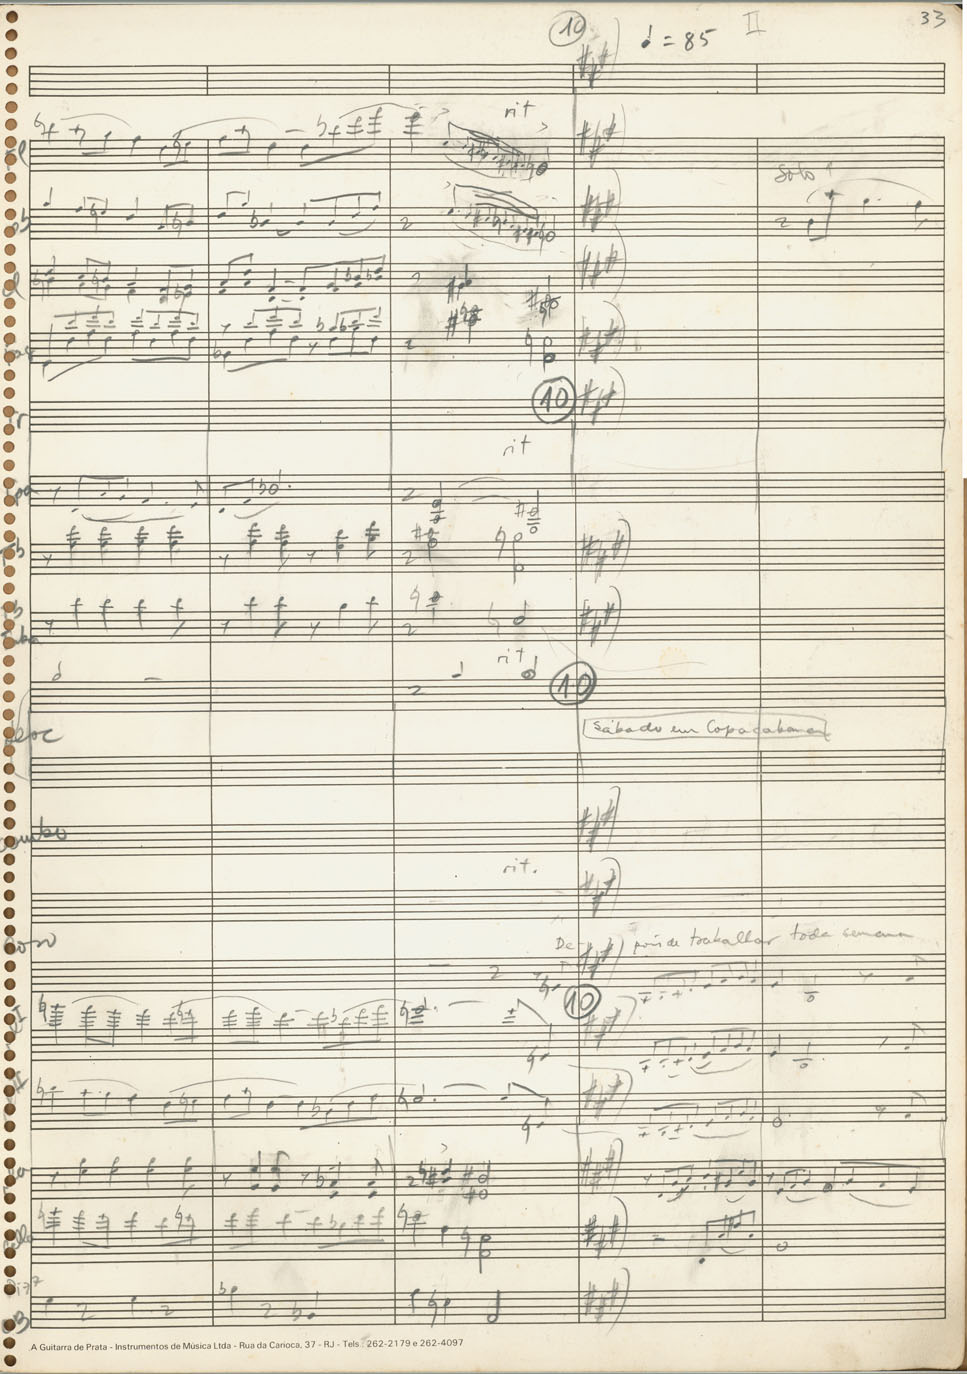 33
10 = 85 II
rit
Solo
10
rit
rit
10
Sábado em Copacabana
rit.
De- pois de trabalhar toda semana
10
A Guitarra de Prata - Instrumentos de Música Ltda - Rua da Carioca, 37 - RJ - Tels.: 262-2179 e 262-4097